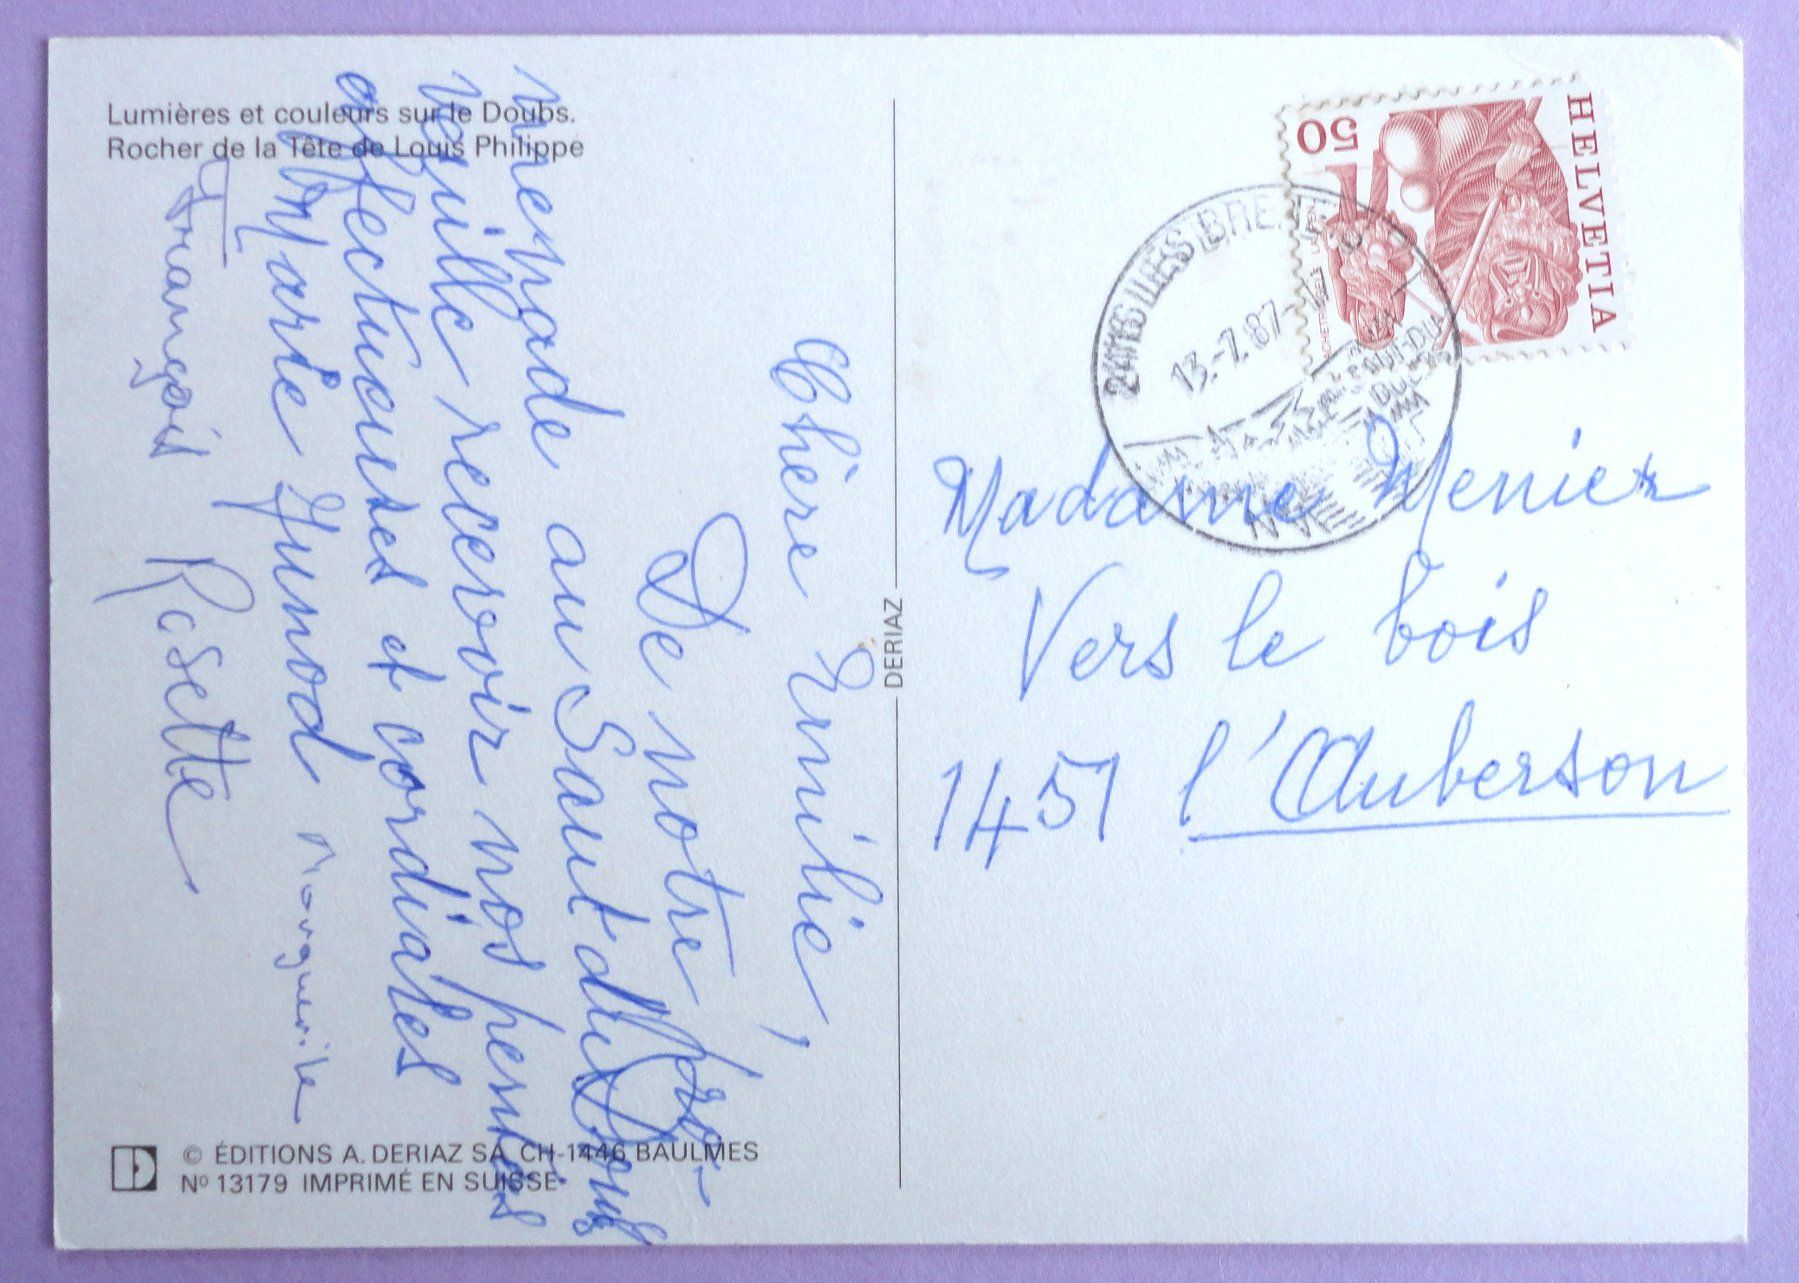 Lumières et couleurs sur le Doubs.
Rocher de la Tête de Louis Philippe
Chère Emilie,
De notre pro-
menade au Saut du Doubs
veuille recevoir nos pensées
affectueuses et cordiales
Marie Junod Marguerite
François Rosette
DERIAZ
© ÉDITIONS A. DERIAZ SA CH-1446 BAULMES
Nº 13179 IMPRIMÉ EN SUISSE
HELVETIA
50
LES BRENETS
13.-7.87
Madame Menier
Vers le bois
1451 l'Auberson